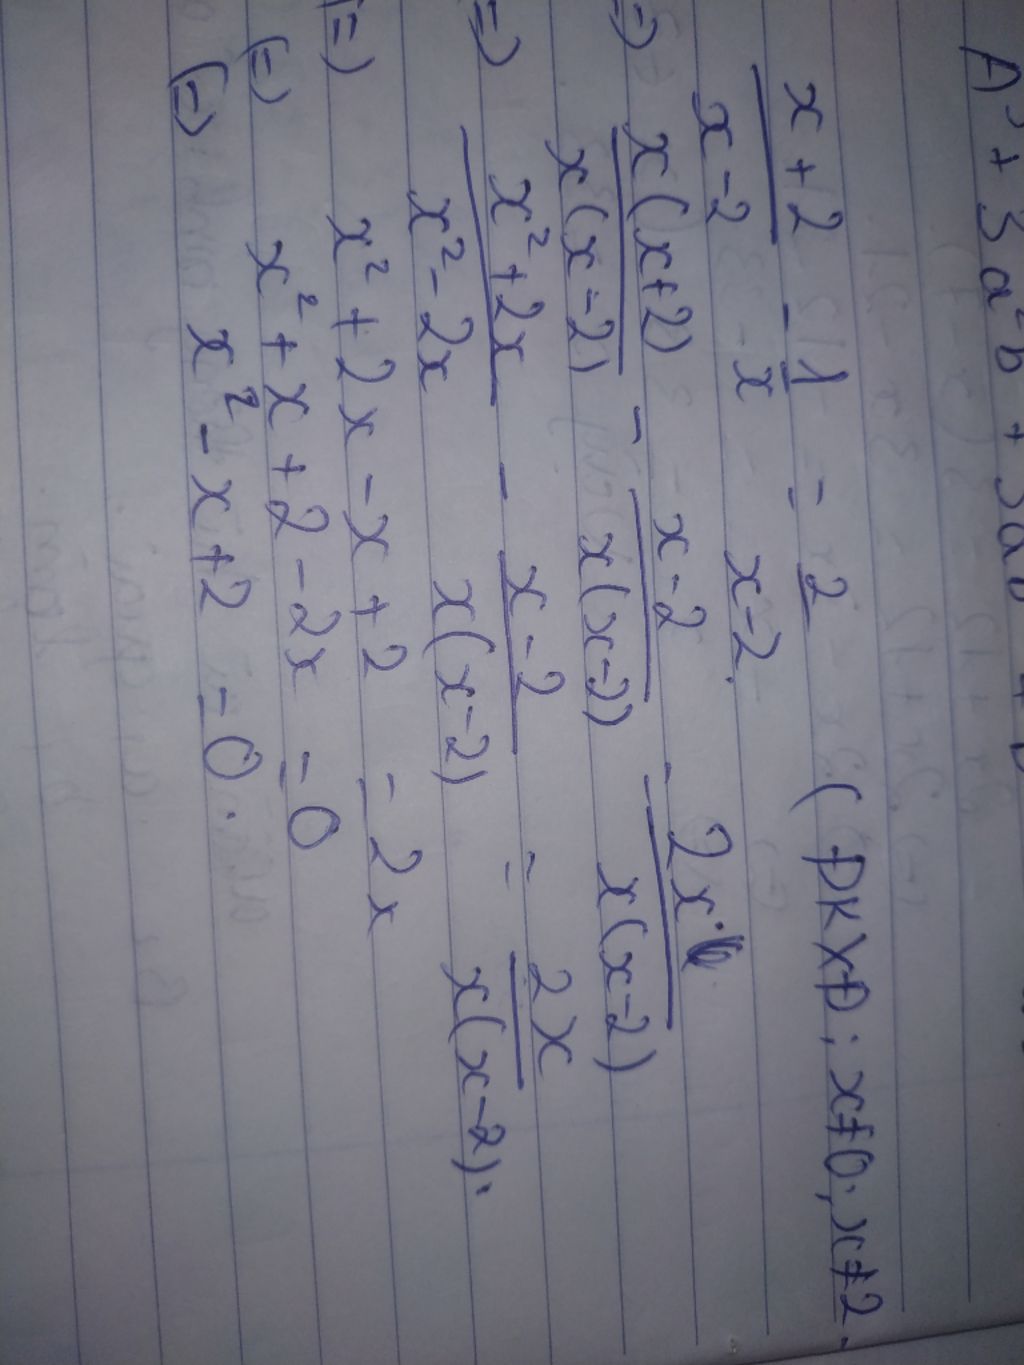 A³ + 3a²b + 3ab
x+2/x-2 - 1/x = 2/x-2 (ĐKXĐ: x≠0; x≠2.
=) x(x+2)/x(x-2) - x-2/x(x-2) - 2x/x(x-2)
=) x²+2x/x²-2x - x-2/x(x-2) = 2x/x(x-2).
(=) x² + 2x - x + 2 = 2x
(=) x² + x + 2 - 2x = 0
(=) x² - x + 2 = 0.